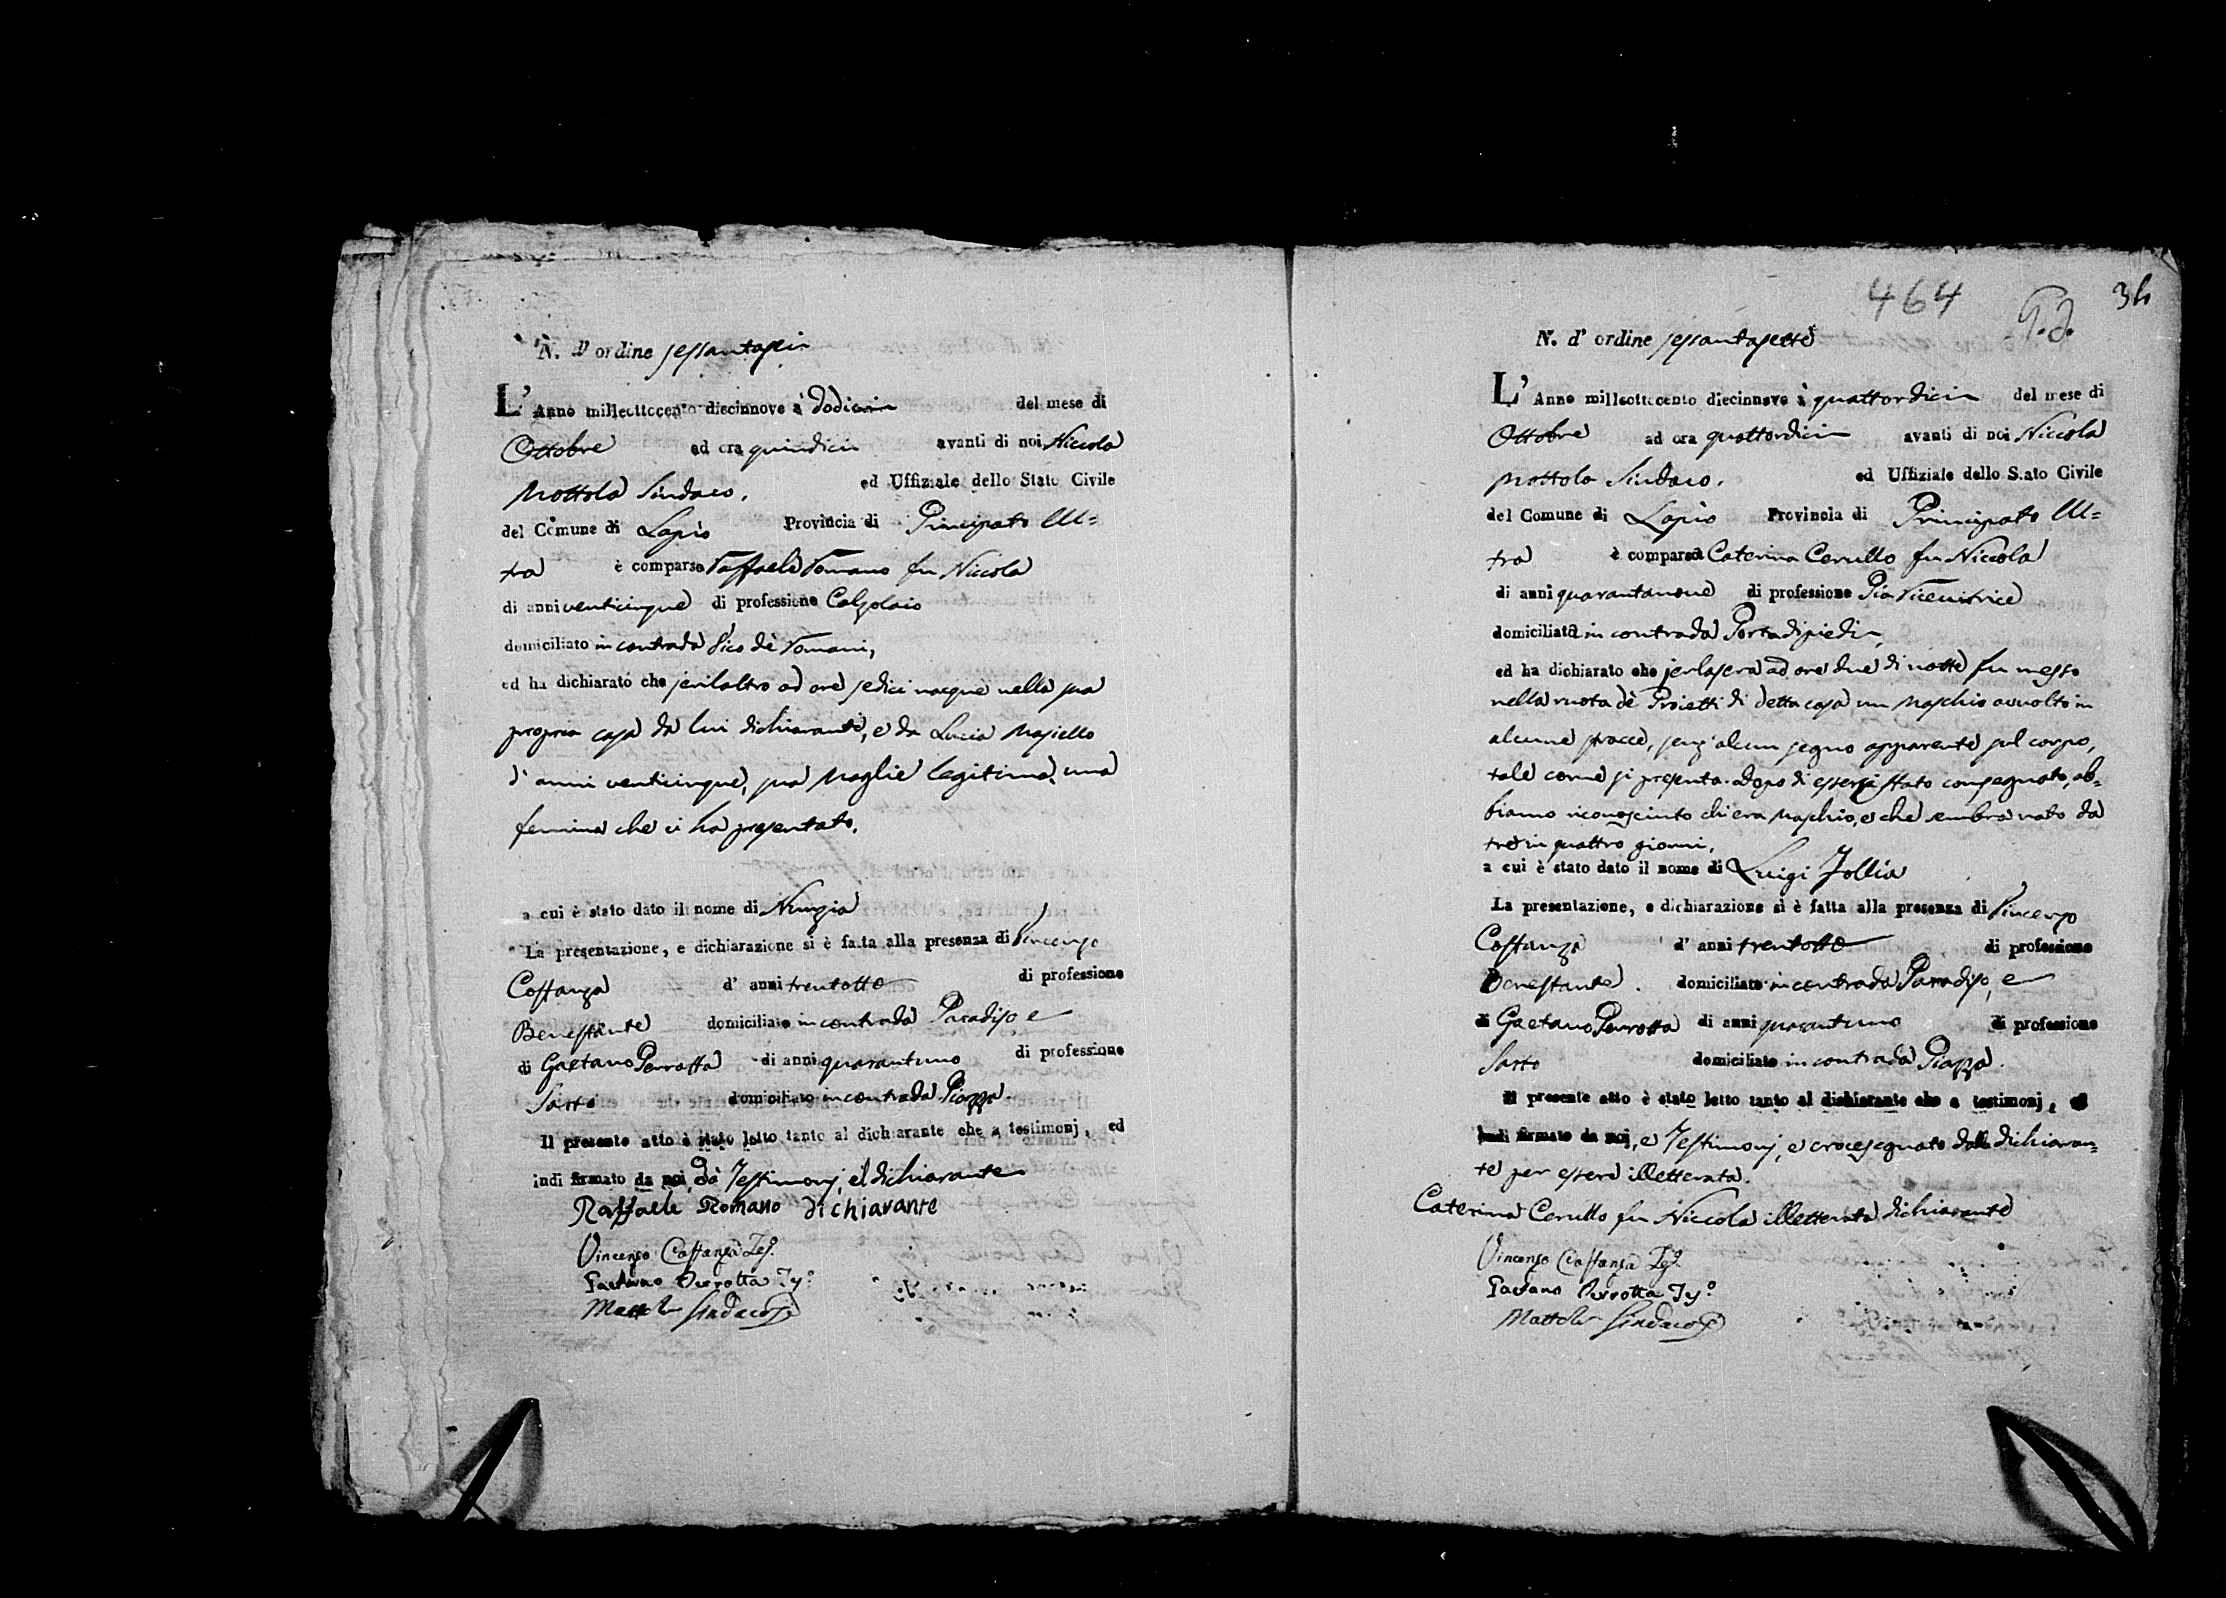 N. d' ordine sessantasei
L' Anno milleottocento diecinnove à dodici del mese di
Ottobre ad ora quindici avanti di noi Niccola
Mottola Sindaco, ed Uffiziale dello Stato Civile
del Comune di Lapio Provincia di Principato Ul=
tra è comparso Raffaele Romano fu Niccola
di anni venticinque di professione Calzolaio
domiciliato in contrada Vico dè Romani,
ed ha dichiarato che jerilaltro ad ore sedici nacque nella sua
propria casa da lui dichiarante, e da Lucia Masiello
d' anni venticinque, sua Moglie legitima, una
femina che ci ha presentato,
a cui è stato dato il nome di Nunzia
La presentazione, e dichiarazione si è fatta alla presenza di Vincenzo
Costanza d' anni trentotto di professione
Benestante domiciliato in contrada Paradiso e
di Gaetano Perrotta di anni quarantuno di professione
Sarto domiciliato in contrada Piazza.
Il presente atto è stato letto tanto al dichiarante che a testimonj, ed
indi firmato da noi, dà Testimonj, e'l dichiarante
Raffaele Romano dichiarante
Vincenzo Costanza Tes.
Gaetano Perrotta Tes.º
Mottola Sindaco
464
N. d' ordine sessantasette
L' Anno milleottocento diecinnove à quattordici del mese di
Ottobre ad ora quattordici avanti di noi Niccola
Mottola Sindaco, ed Uffiziale dello Stato Civile
del Comune di Lapio Provincia di Principato Ul=
tra è comparsa Caterina Cerullo fu Niccola
di anni quarantanove di professione Pia Ricevitrice
domiciliata in contrada Portadipiedi,
ed ha dichiarato che jerlasera ad ore due di notte fu messo
nella ruota dè Proietti di detta casa un Maschio avvolto in
alcune stracce, senz' alcun segno apparente sul corpo,
tale come si presenta. Dopo di essersi stato consegnato, ab=
biamo riconosciuto ch'era Maschio, e che sembra nato da
tre in quattro giorni,
a cui è stato dato il nome di Luigi Jollia
La presentazione, e dichiarazione si è fatta alla presenza di Vincenzo
Costanza d' anni trentotto di professione
Benestante. domiciliato in contrada Paradiso, e
di Gaetano Perrotta di anni quarantuno di professione
Sarto domiciliato in contrada Piazza.
Il presente atto è stato letto tanto al dichiarante che a testimonj, ed
indi firmato da noi, e Testimonj, e crocesegnato dalla dichiaran=
te per essere illetterata.
Caterina Cerullo fu Niccola illetterata dichiarante
Vincenzo Costanza Tes.
Gaetano Perrotta Tes.º
Mottola Sindaco